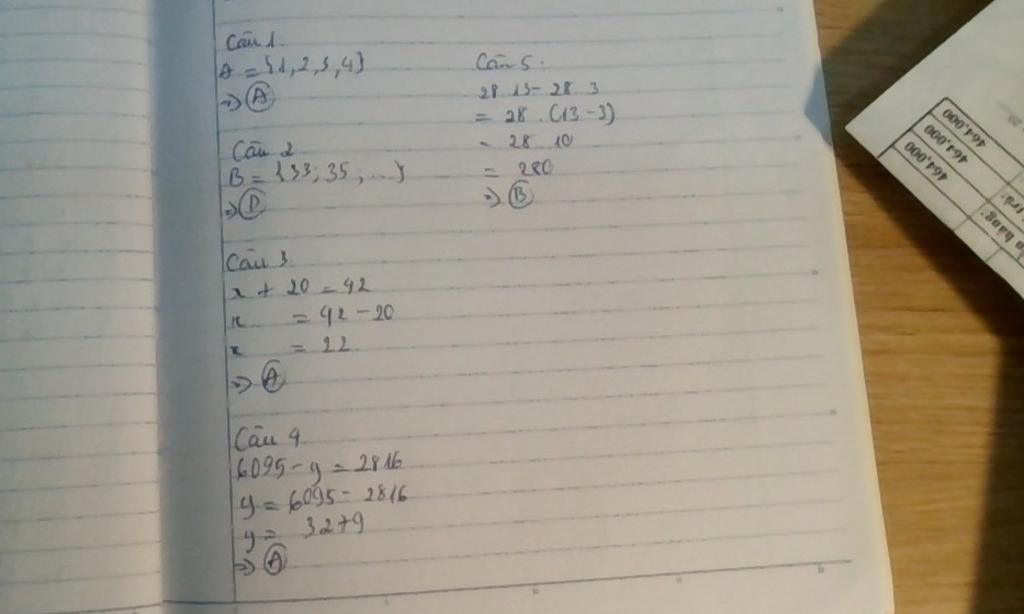 Câu 1.
A = {1, 2, 3, 4}
=> A
Câu 2
B = {33; 35; ...}
=> D
Câu 3
x + 20 = 42
x = 42 - 20
x = 22
=> A
Câu 4
6095 - y = 2816
y = 6095 - 2816
y = 3279
=> A
Câu 5:
28 13 - 28 3
= 28 . (13 - 3)
= 28 10
= 280
=> B
464,000
464,000
464,000
hàng:
trả: